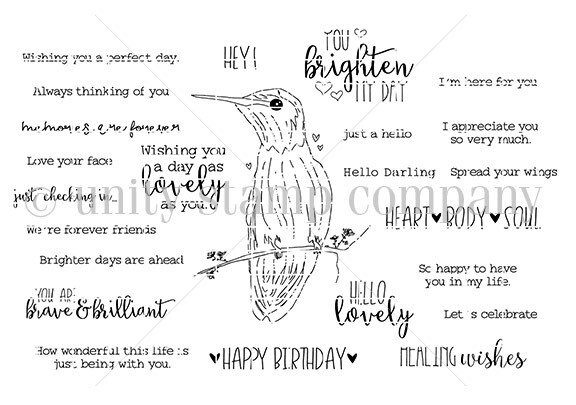 Wishing you a perfect day.
Always thinking of you
memories are forever
Love your face
just checking in...
We're forever friends
Brighter days are ahead
YOU ARE
brave & brilliant
How wonderful this life is
just being with you.
HEY!
Wishing you
a day as
lovely
as you.
♥HAPPY BIRTHDAY♥
YOU
brighten
MY DAY
just a hello
Hello Darling
HELLO
lovely
I'm here for you
I appreciate you
so very much.
Spread your wings
HEART♥BODY♥SOUL
So happy to have
you in my life.
Let's celebrate
HEALING wishes
© unity stamp company